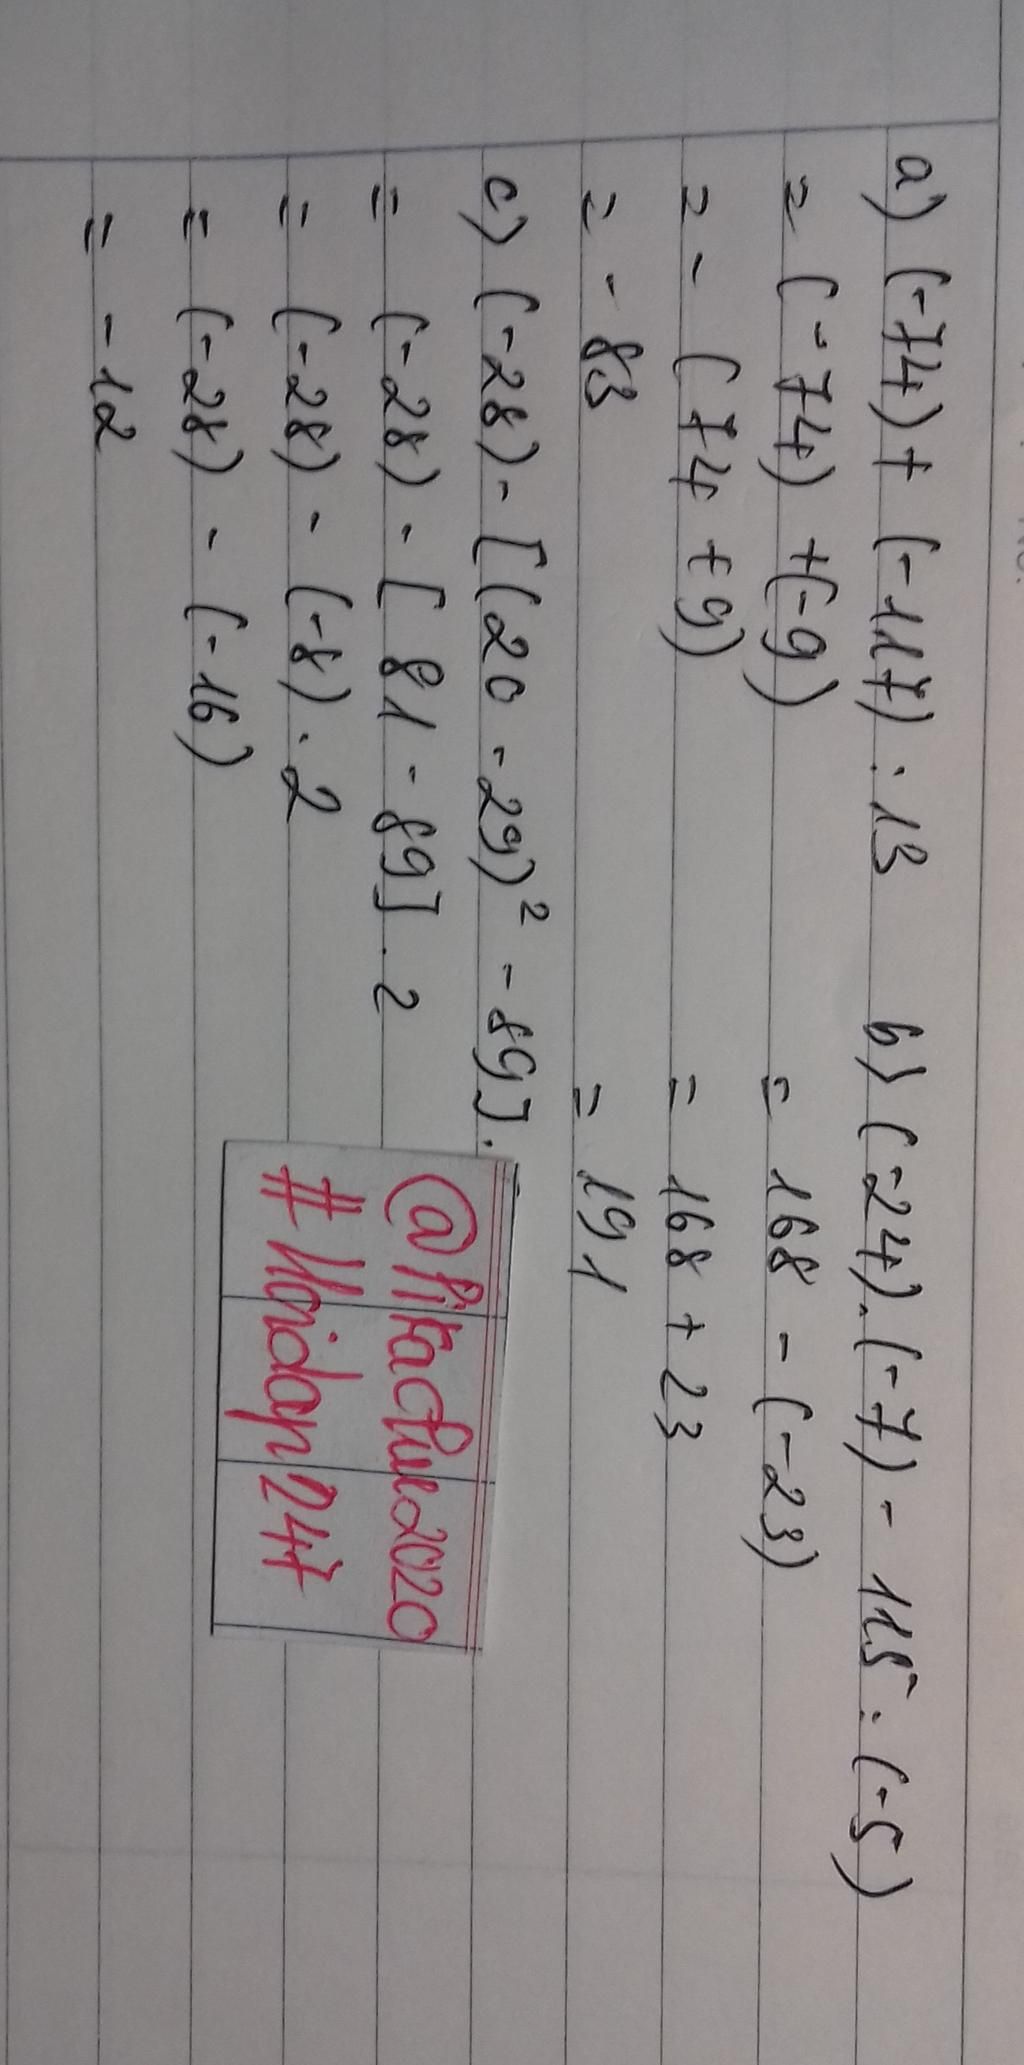 a) (-74) + (-117) : 13
= (-74) + (-9)
= - (74 + 9)
= - 83
b) (-24).(-7) - 115 : (-5)
= 168 - (-23)
= 168 + 23
= 191
c) (-28) - [(20 - 29)² - 89].
= (-28) - [81 - 89] . 2
= (-28) - (-8) . 2
= (-28) - (-16)
= -12
@Pikachu2020
#Hoidap247